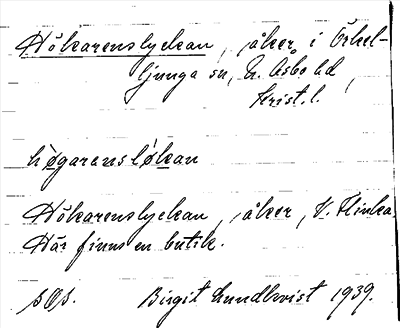 Hökarenslyckan, åker, i Örkel-
ljunga sn, N. Åsbo hd,
Krist. l.
högaransløkan
Hökarenslyckan, åker, V. Flinka
Här finns en butik.
Birgit Lundkvist 1939.